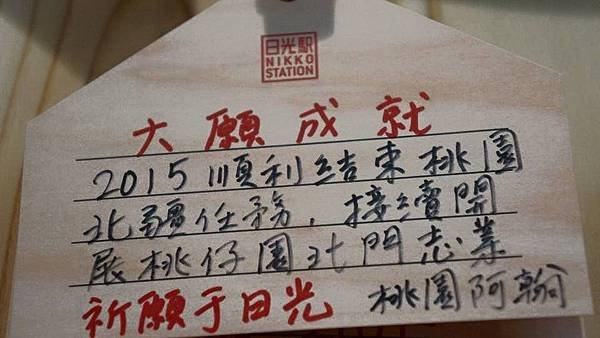 日光駅
NIKKO
STATION
大願成就
2015 順利結束桃園
北疆任務，接續開
展桃仔園北門志業
祈願于日光 桃園阿翰